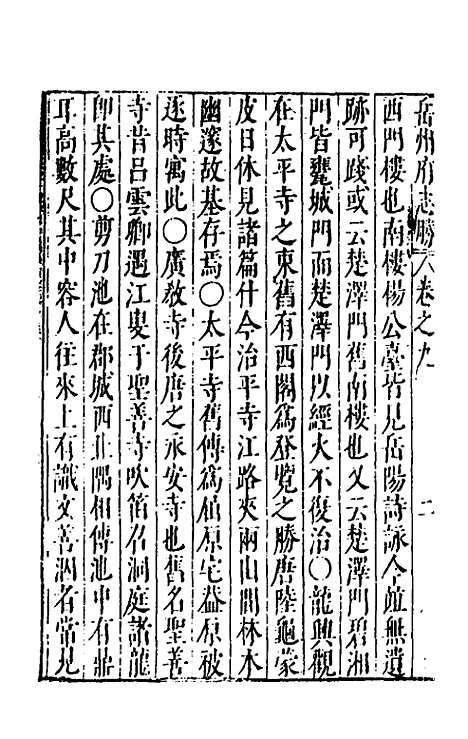 岳州府志勝 卷之九 二
西門樓也南樓楊公臺皆見岳陽詩詠今竝無遺
跡可踐或云楚澤門舊南樓也又云楚澤門碧湘
門皆甕城門而楚澤門以經火不復治〇龍興觀
在太平寺之東舊有西閣爲登覽之勝唐陸龜蒙
皮日休見諸篇什今治平寺江路夾兩山間林木
幽邃故基存焉〇太平寺舊傳爲屈原宅益原被
逐時寓此〇廣教寺後唐之永安寺也舊名聖善
寺昔呂雲卿遇江叟于聖善寺吹笛名洞庭諸龍
卽其處〇剪刀池在郡城西北隅相傳池中有鼎
耳高數尺其中容人往來上有識文善泅名常見